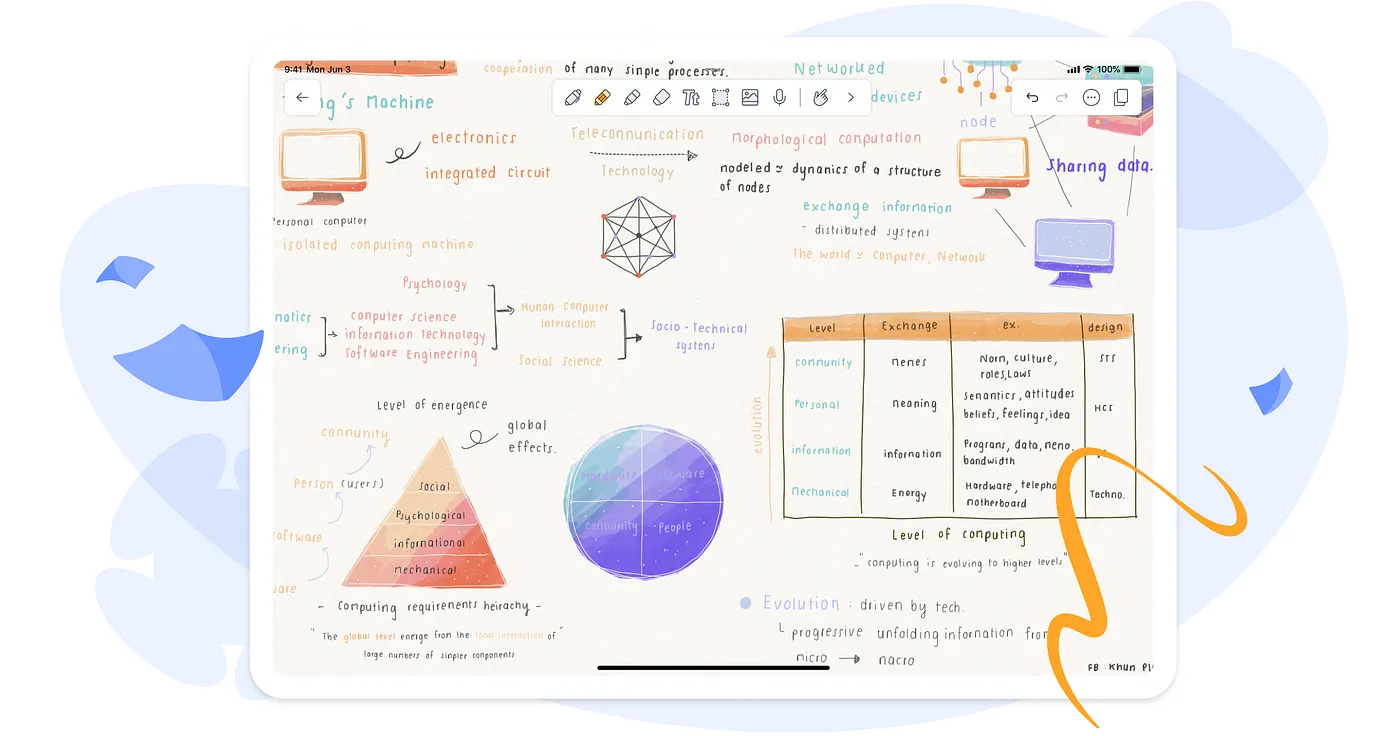 9:41 Mon Jun 3
100%
cooperation of many simple processes.
Networked
devices
g's Machine
electronics
integrated circuit
Personal computer
isolated computing machine
Telecommunication
Technology
Morphological computation
modeled ≃ dynamics of a structure
of nodes
exchange information
- distributed systems
The world ≃ computer, Network
node
Sharing data.
Psychology
matics
ering
computer science
information technology
Software Engineering
Human computer
interaction
Social Science
Socio-Technical
systems
Level of emergence
global
effects.
community
Person (users)
software
ware
Social
Psychological
informational
mechanical
- Computing requirements heirachy -
"The global level emerge from the local interaction of"
large numbers of simpler components
Hardware
Software
community
People
evolution
Level Exchange ex. design
community memes Norm, culture, STS
roles,Laws
Personal meaning semantics, attitudes HCI
beliefs, feelings,idea
information information Programs, data, memo,
bandwidth
Mechanical Energy Hardware, telepho Techno.
motherboard
Level of computing
-"computing is evolving to higher levels"
Evolution : driven by tech.
progressive unfolding information from
micro → macro
FB : Khun Pl